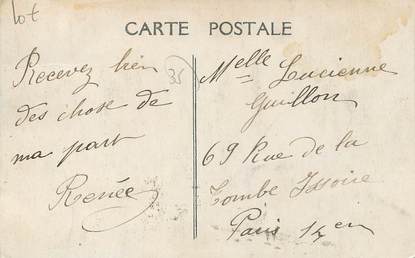 lot
CARTE POSTALE
35
Recevez bien
des chose de
ma part
Renée
Melle Lucienne
Guillon
69 Rue de la
Tombe Issoire
Paris 14em